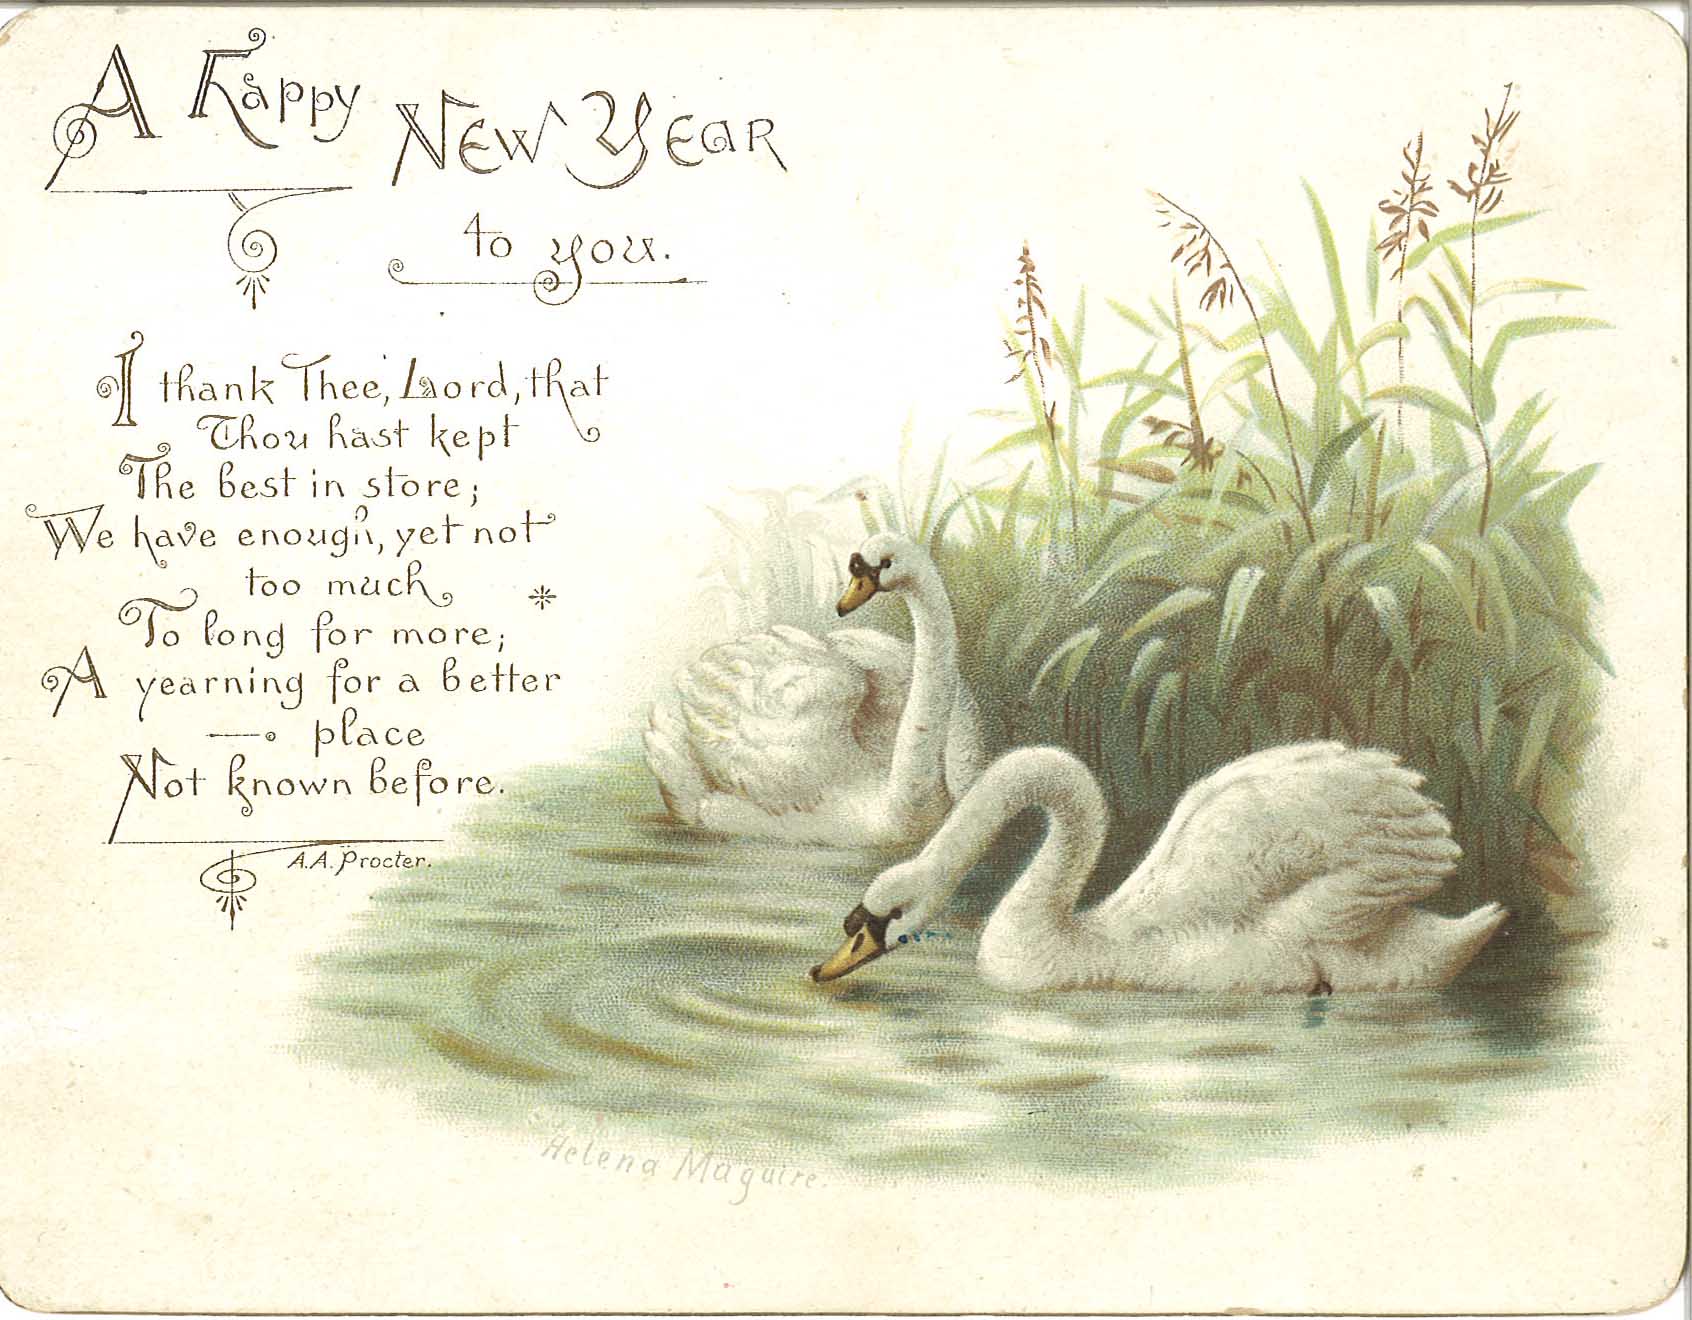 A Happy New Year
to you.
I thank Thee, Lord, that
Thou hast kept
The best in store;
We have enough, yet not
too much
To long for more;
A yearning for a better
place
Not known before.
A.A. Procter.
Helena Maguire.